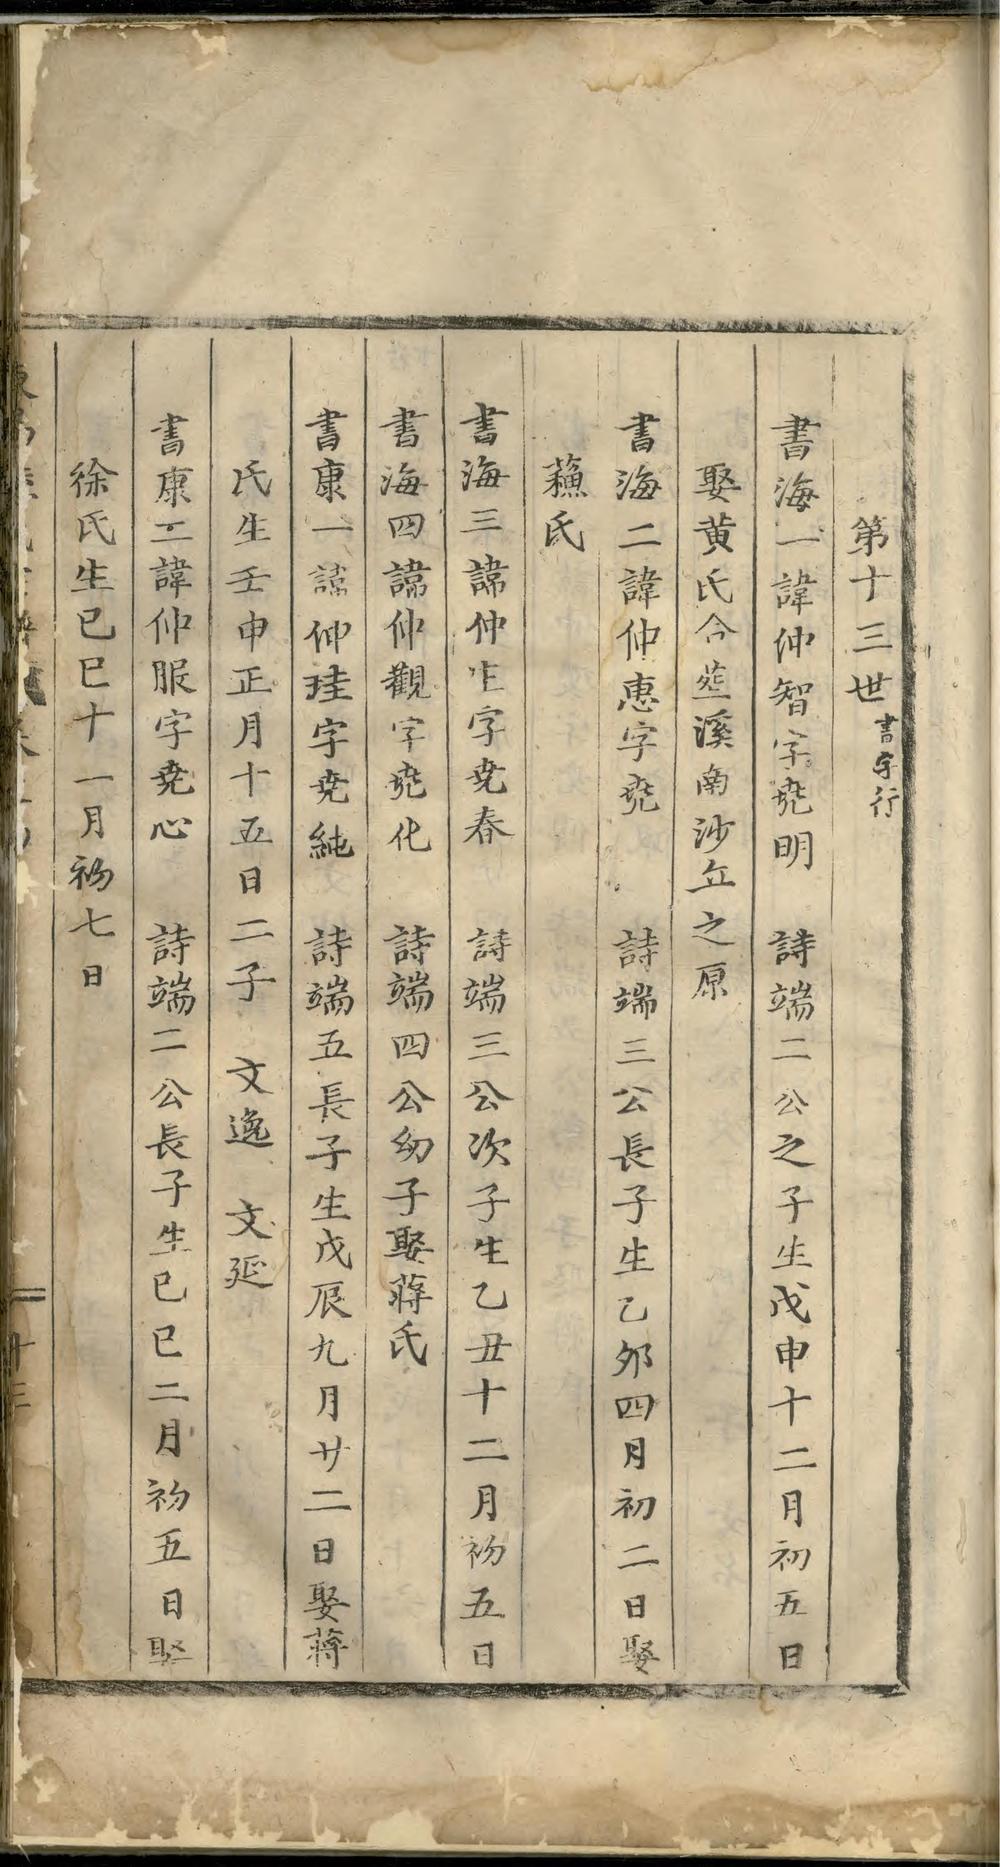 第十三世書字行
書海一諱仲智字堯明　詩端二公之子生戊申十二月初五日
娶黄氏合塟溪南沙丘之原
書海二諱仲惠字堯　詩端三公長子生乙夘四月初二日娶
蘓氏
書海三諱仲字堯春　詩端三公次子生乙丑十二月初五日
書海四諱仲觀字堯化　詩端四公幼子娶蔣氏
書康一諱仲珪字堯純　詩端五長子生戊辰九月廿二日娶蔣
氏生壬申正月十五日二子　文逸　文延
書康二諱仲服字堯心　詩端二公長子生已巳二月初五日娶
徐氏生已巳十一月初七日
十三